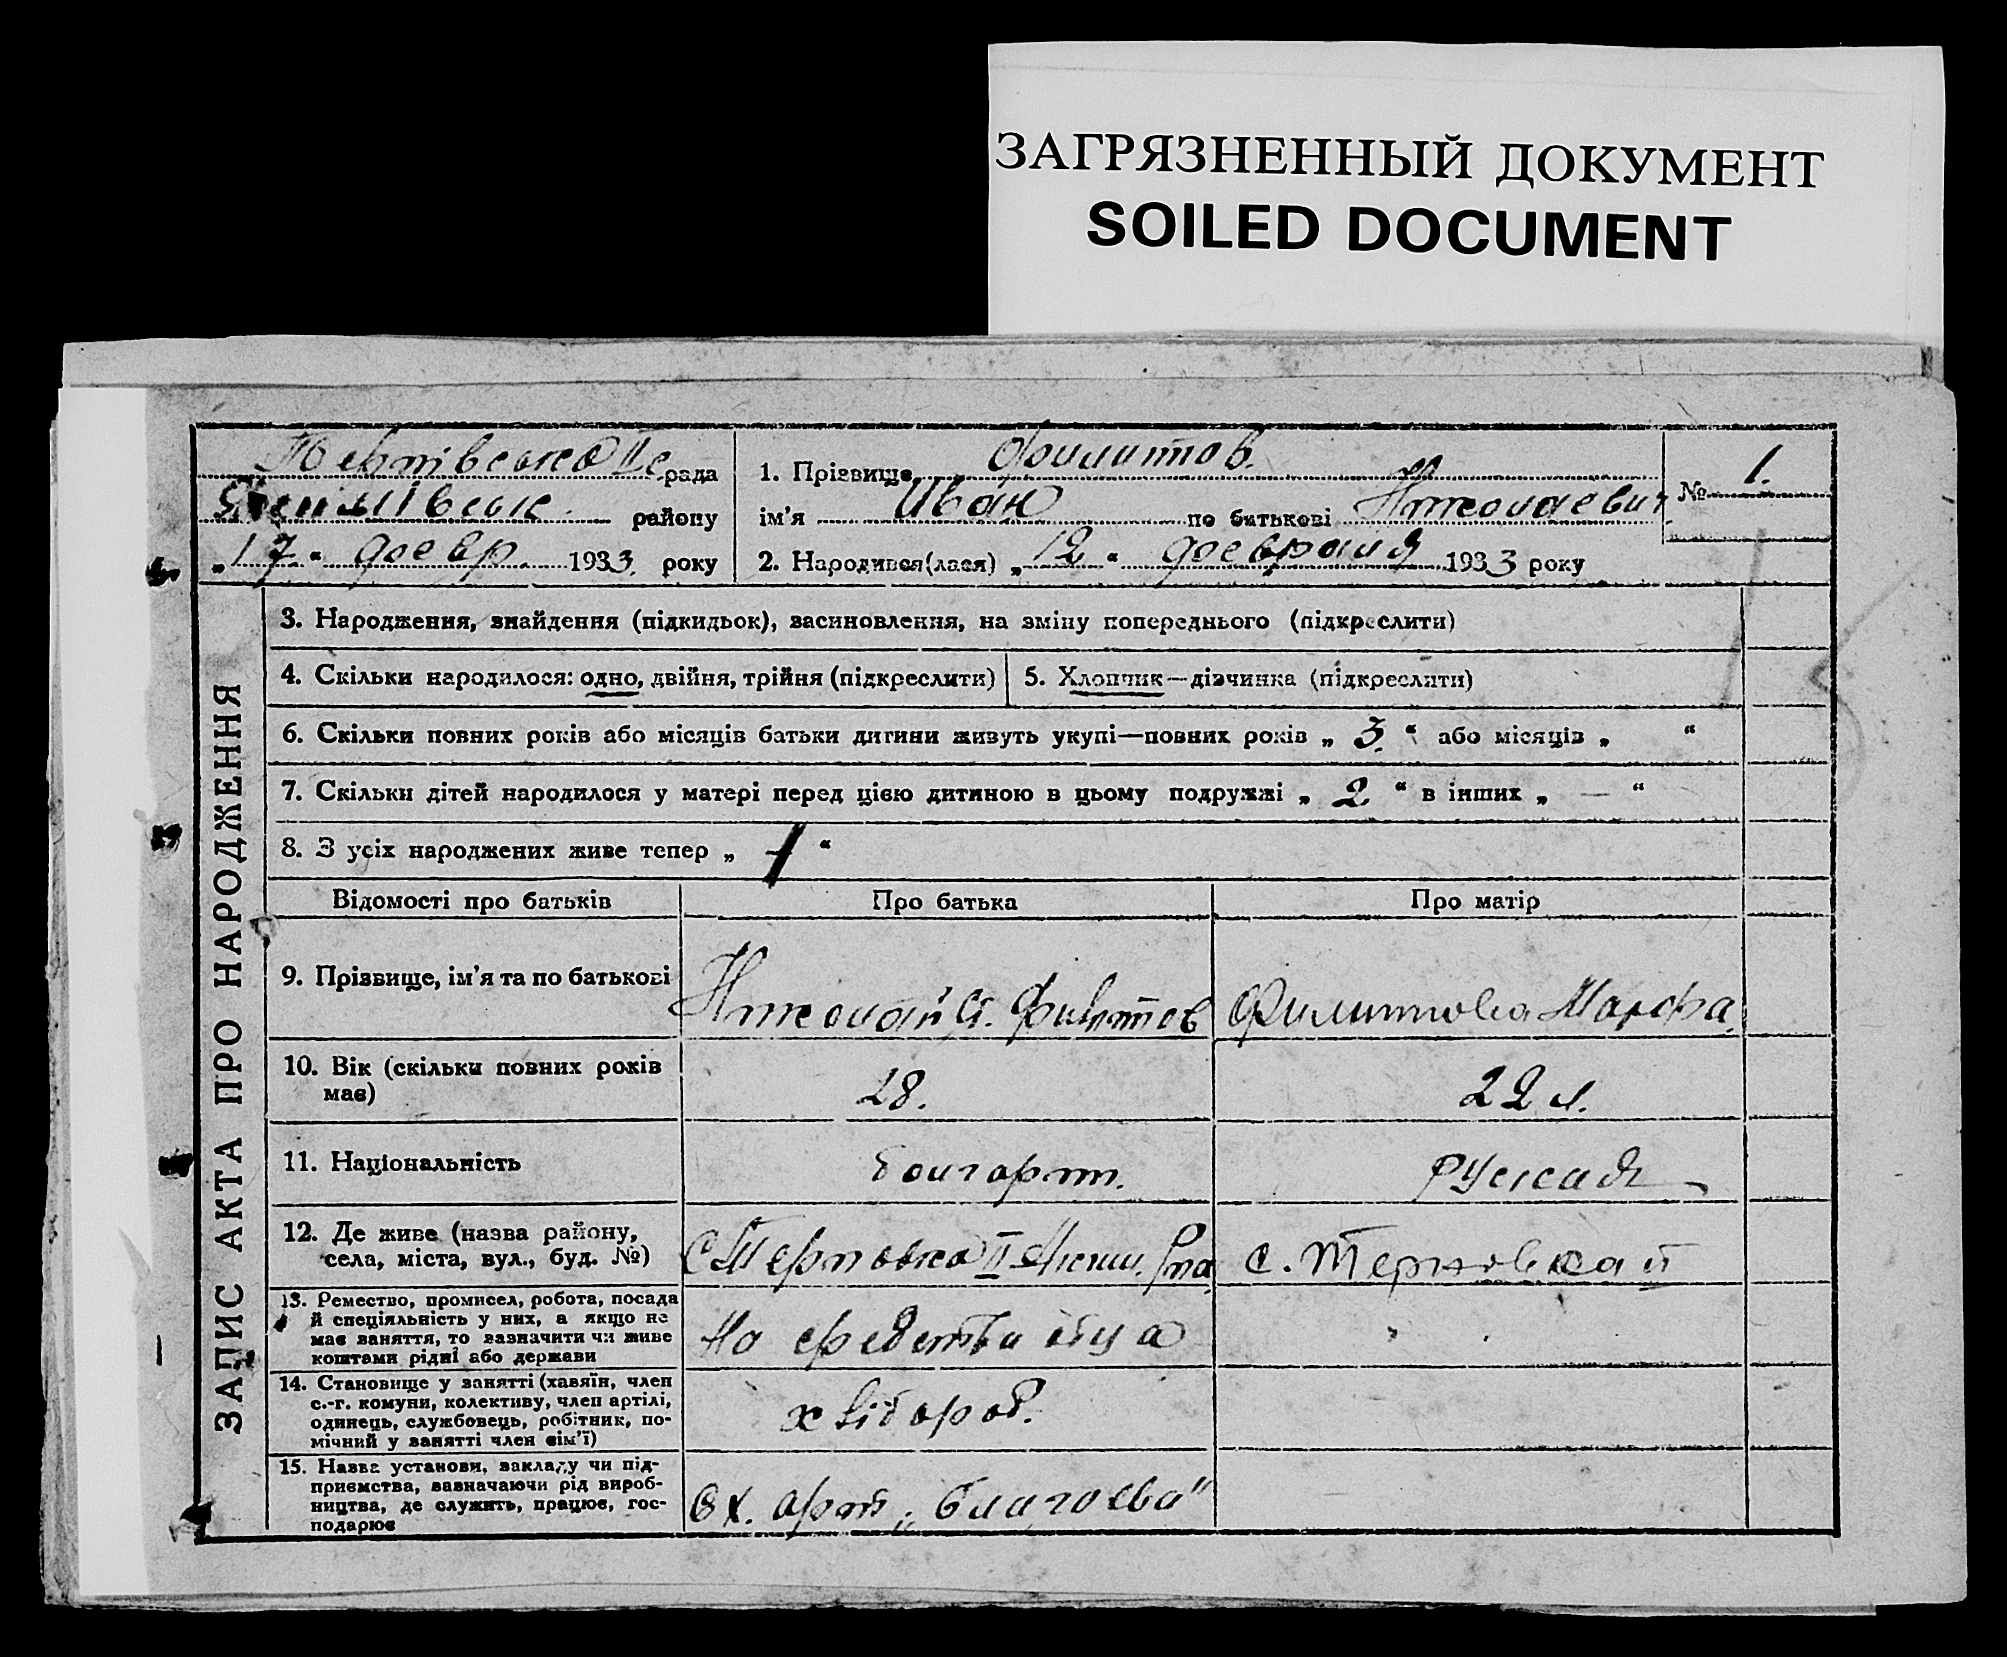 ЗАГРЯЗНЕННЫЙ ДОКУМЕНТ
SOILED DOCUMENT
ЗАПИС АКТА ПРО НАРОДЖЕННЯ
рада
району
„17“ февр. 1933 року
1. Прізвище Филиппов.
ім'я Иван по батькові Николаевич
2. Народився(лася) „12“ февраля 1933 року
№ 1.
3. Народження, знайдення (підкидьок), засиновлення, на зміну попереднього (підкреслити)
4. Скільки народилося: одно, двійня, трійня (підкреслити)
5. Хлопчик—дівчинка (підкреслити)
6. Скільки повних років або місяців батьки дитини живуть укупі—повних років „3.“ або місяців „ “
7. Скільки дітей народилося у матері перед цією дитиною в цьому подружжі „2“ в інших „ — “
8. З усіх народжених живе тепер „1“
Відомості про батьків
Про батька
Про матір
9. Прізвище, ім'я та по батькові
Николай Филиппов
Филиппова Марфа
10. Вік (скільки повних років
має)
28.
22 л.
11. Національність
болгарин.
русская
12. Де живе (назва району,
села, міста, вул., буд. №)
с Терновка II
с. Терновка II
13. Ремество, промисел, робота, посада
й спеціяльність у них, а якщо не
має заняття, то зазначити чи живе
коштами рідні або держави
На средства отца
14. Становище у занятті (хазяїн, член
с.-г. комуни, колективу, член артілі,
одинець, службовець, робітник, по-
мічний у занятті член сім'ї)
хлібороб.
15. Назва установи, закладу чи під-
приємства, зазначаючи рід вироб-
ництва, де служить, працює, гос-
подарює
арт. „Благоева"